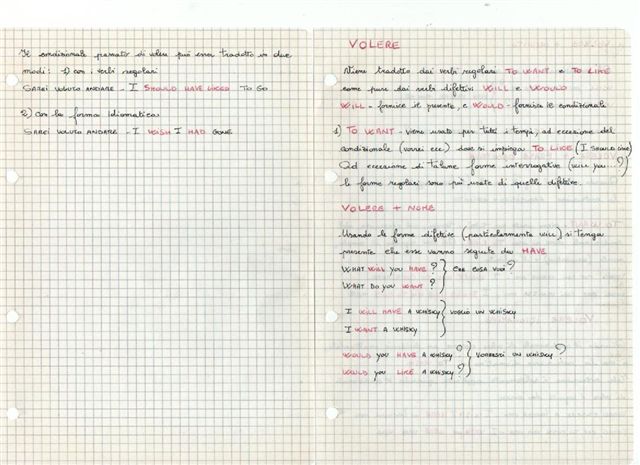 Il condizionale passato di volere può esser tradotto in due
modi: 1) con i verbi regolari
SAREI VOLUTO ANDARE - I SHOULD HAVE LIKED TO GO
2) Con la forma idiomatica
SAREI VOLUTO ANDARE - I WISH I HAD GONE
VOLERE
Viene tradotto dai verbi regolari TO WANT e TO LIKE
come pure dai verbi difettivi WILL e WOULD
WILL - fornisce il presente, e WOULD - fornisce il condizionale
1) TO WANT - viene usato per tutti i tempi, ad eccezione del
condizionale (vorrei ecc) dove si impiega TO LIKE (I SHOULD LIKE)
Ad eccezione di talune forme interrogative (WILL YOU...?)
le forme regolari sono più usate di quelle difettive.
VOLERE + NOME
Usando le forme difettive (particolarmente WILL) si tenga
presente che esse vanno seguite da HAVE
WHAT WILL YOU HAVE? } CHE COSA VUOI?
WHAT DO YOU WANT? }
I WILL HAVE A WHISKY } VOGLIO UN WHISKY
I WANT A WHISKY
WOULD YOU HAVE A WHISKY? } VORRESTI UN WHISKY?
WOULD YOU LIKE A WHISKY?